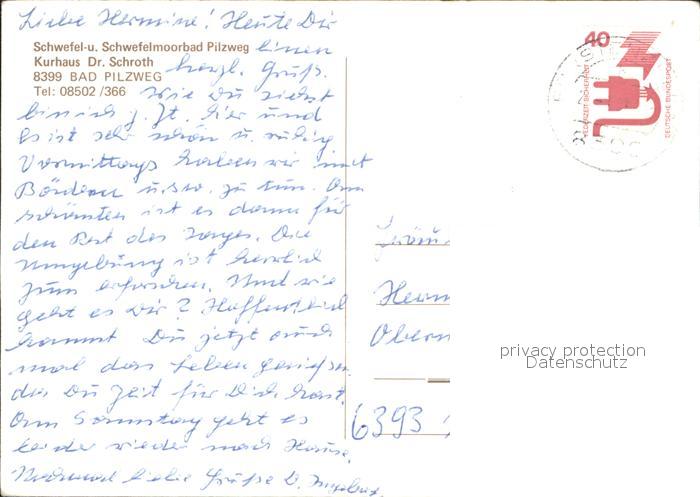 Liebe Hermine! Heute Dir
Schwefel-u. Schwefelmoorbad Pilzweg einen
Kurhaus Dr. Schroth herzl. Gruß.
8399 BAD PILZWEG
Tel: 08502 /366 Wie Du siehst
bin ich z. Zt. hier und
es ist sehr schön u. ruhig
Vormittags haben wir mit
Bädern u.s.w. zu tun. Am
schönsten ist es dann für
den Rest des Tages. Die
Umgebung ist herrlich
zum erforschen. Und wie
geht es Dir? Hoffentlich
kommst Du jetzt auch
mal das Leben geniesen
da Du Zeit für Dich hast.
Am Sonntag geht es
leider wieder nach Hause.
Nochmal liebe Grüße D. Ingeborg
40
JEDERZEIT SICHERHEIT
DEUTSCHE BUNDESPOST
Herm
Obern
6393
privacy protection
Datenschutz